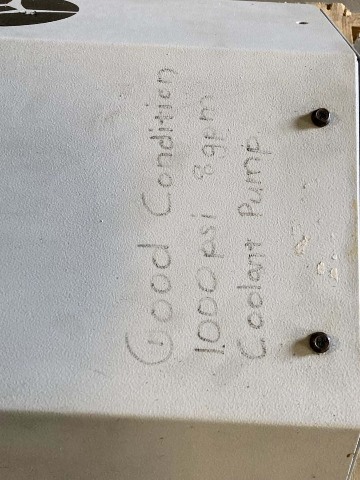 Good Condition
1000 psi 8gpm
Coolant Pump